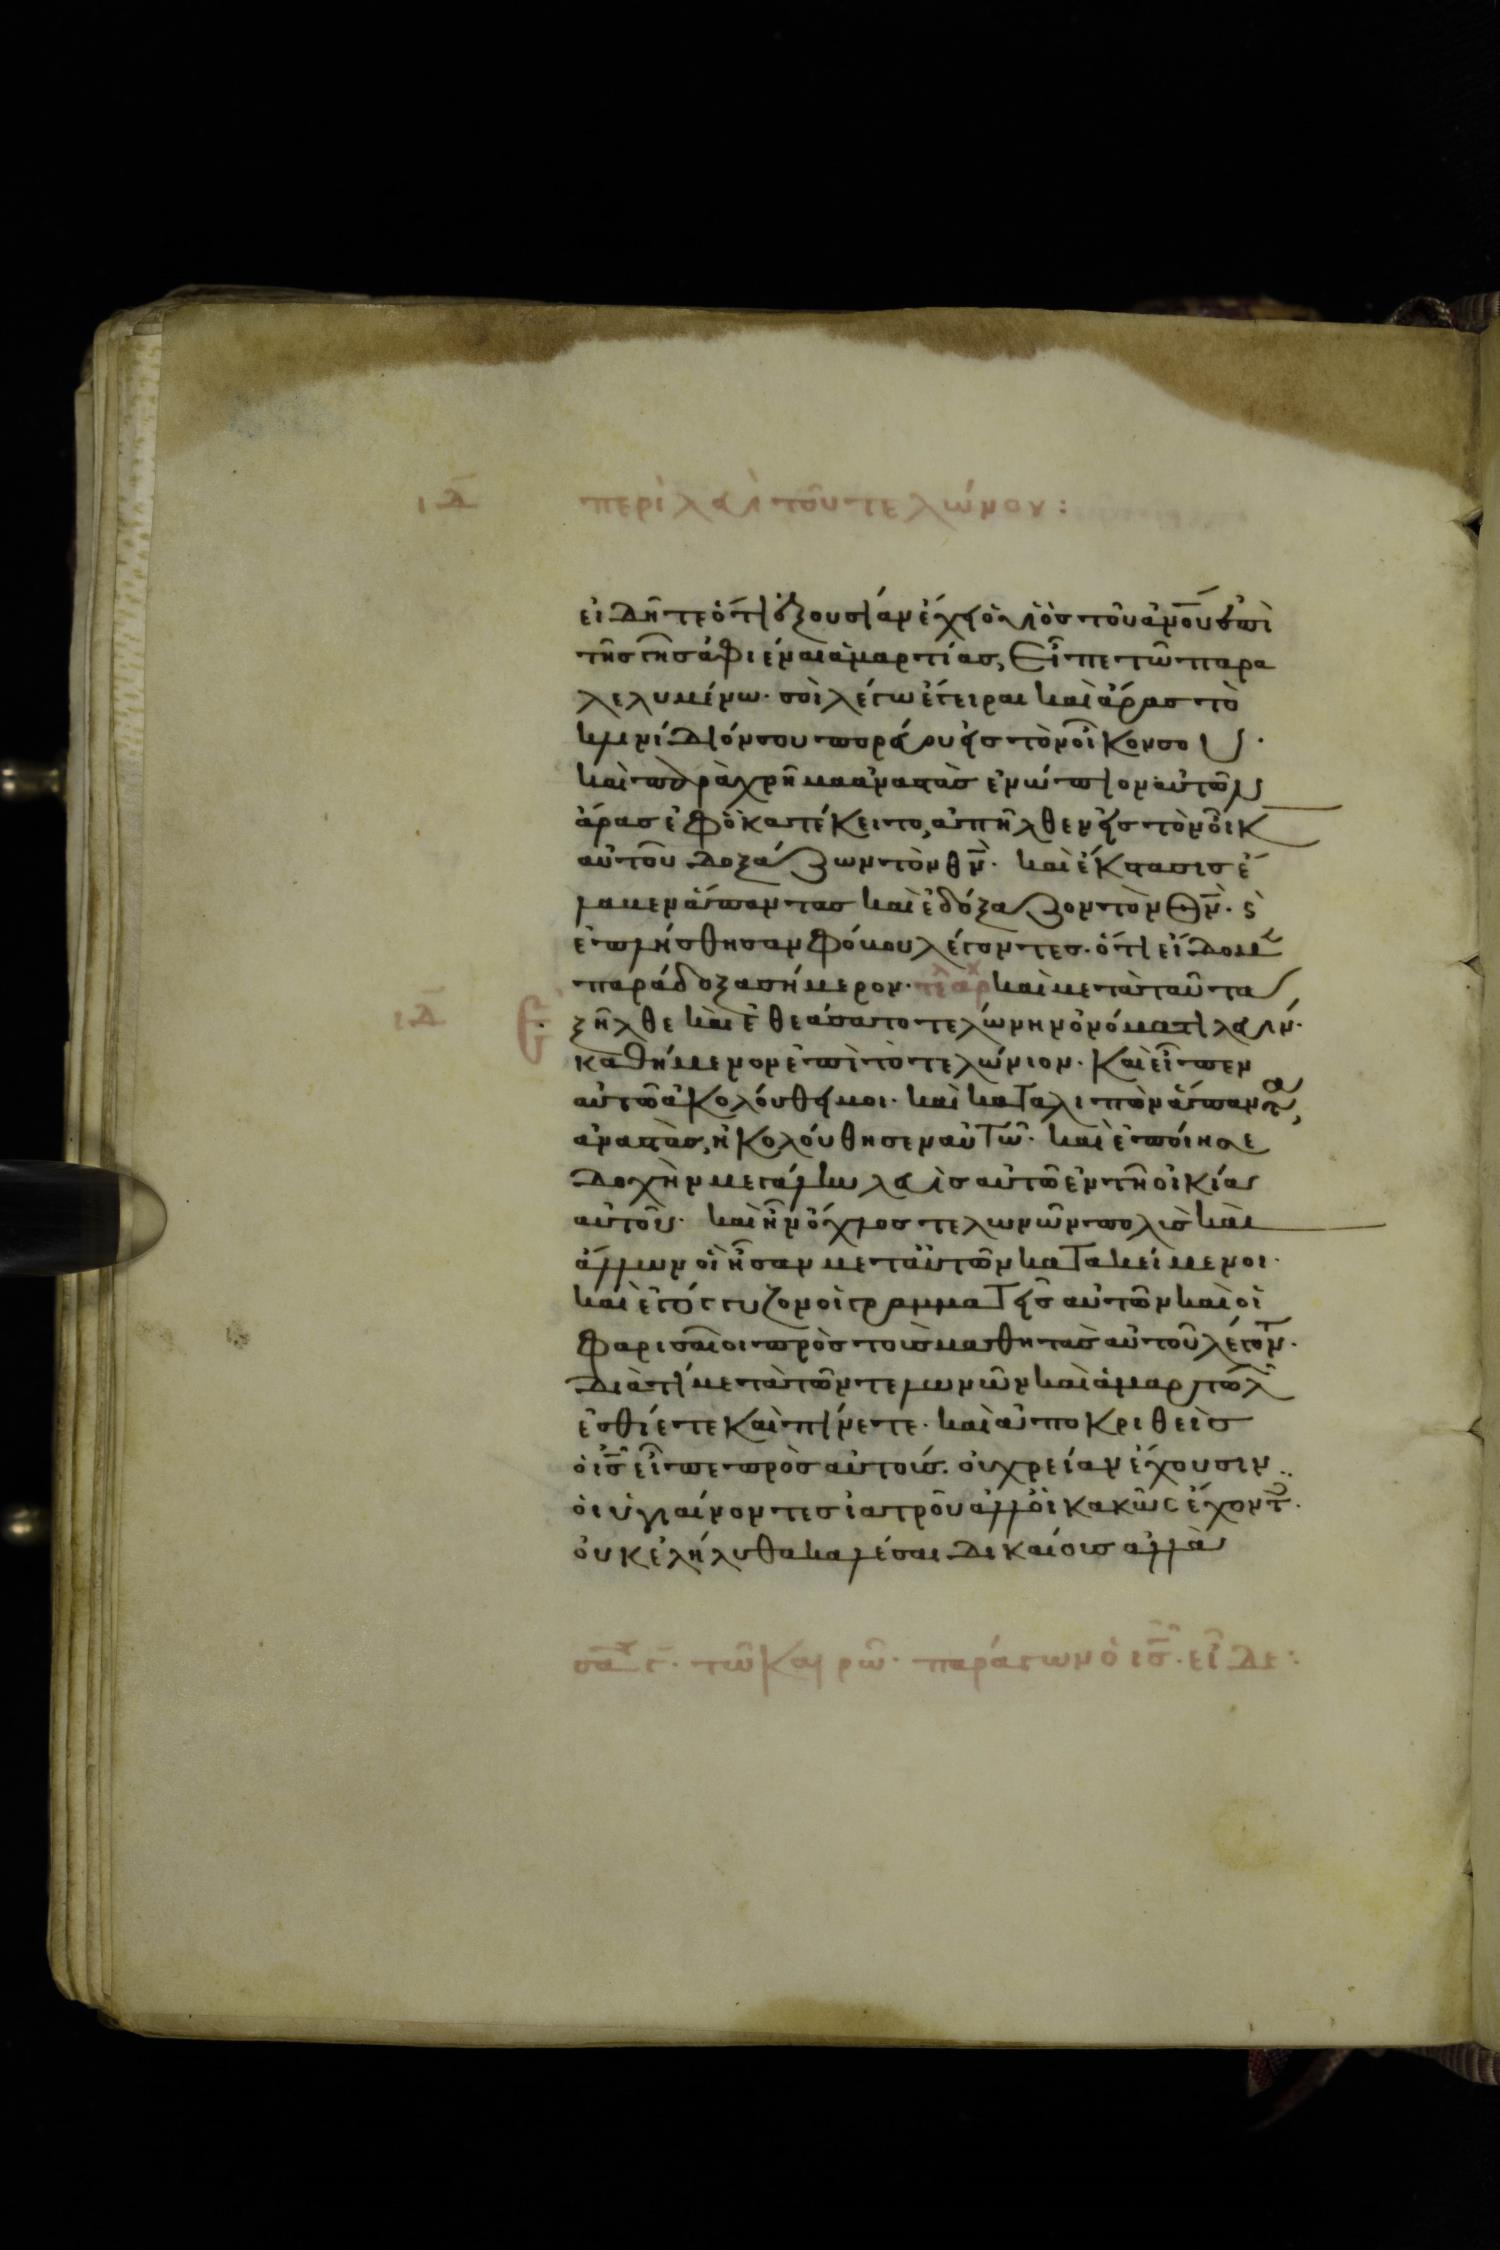 ιδ περὶ λευὶ τοῦ τελώνου:
εἰδῆτε ὅτι ἐξουσίαν ἔχει ὁ υἱὸς τοῦ ἀνου ἐπὶ
τῆς γῆς ἀφιέναι ἁμαρτίας, εἶπε τῶ παρα
λελυμένω· σοὶ λέγω ἔγειραι καὶ ἄρας τὸ
κλινίδιόν σου πορεύου εἰς τὸν οἶκον σου·
καὶ παραχρῆμα ἀναστὰς ἐνώπιον αὐτῶν
ἄρας ἐφ ὃ κατέκειτο, ἀπῆλθεν εἰς τὸν οἶκ
αὐτοῦ δοξάζων τὸν θν· καὶ ἔκστασις ἔ
λαβεν ἅπαντας καὶ ἐδόξαζον τὸν θν· ϗ
ἐπλήσθησαν φόβου λέγοντες· ὅτι εἴδομε
παράδοξα σήμερον· τελ αρχ καὶ μετὰ ταῦτα
ιδ ἐξῆλθε καὶ ἐθεάσατο τελώνην ὀνόματι λευίν·
καθήμενον ἐπὶ τὸ τελώνιον· καὶ εἶπεν
αὐτῶ ἀκολούθει μοι· καὶ καταλιπὼν ἅπαντα,
ἀναστὰς, ἠκολούθησεν αὐτῶ· καὶ ἐποίησε
δοχὴν μεγάλην λευὶς αὐτῶ ἐν τῆ οἰκία
αὐτοῦ· καὶ ἦν ὄχλος τελωνῶν πολὺς καὶ
ἄλλων οἳ ἦσαν μετ αὐτῶν κατακείμενοι·
καὶ ἐγόγγυζον οἱ γραμματεῖς αὐτῶν καὶ οἱ
φαρισαῖοι πρὸς τοὺς μαθητὰς αὐτοῦ λέγοντ·
διὰ τί μετὰ τῶν τελωνῶν καὶ ἁμαρτωλ
ἐσθίετε καὶ πίνετε· καὶ ἀποκριθεὶς
ὁ ις εἶπε πρὸς αὐτούς· οὐ χρείαν ἔχουσιν
οἱ ὑγιαίνοντες ἰατροῦ ἀλλ οἱ κακῶς ἔχοντ·
οὐκ ἐλήλυθα καλέσαι δικαίους ἀλλὰ
σα γ· τῶ καιρῶ· παράγων ὁ ις· εἶδε: